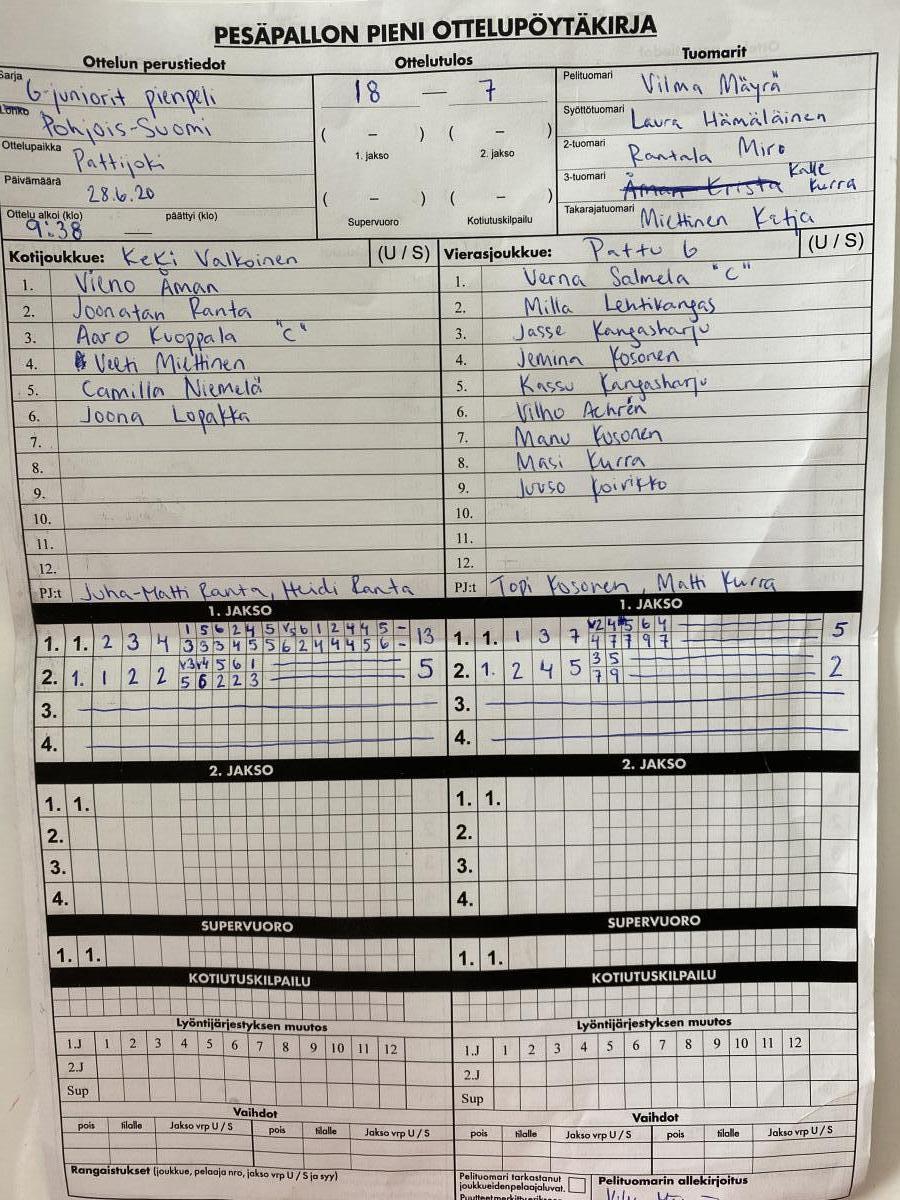 PESÄPALLON PIENI OTTELUPÖYTÄKIRJA
Ottelun perustiedot
Ottelutulos
Tuomarit
Sarja G-juniorit pienpeli
Lohko Pohjois-Suomi
Ottelupaikka Pattijoki
Päivämäärä 28.6.20
Ottelu alkoi (klo) päättyi (klo)
9:38 —
18 — 7
( – ) ( – )
1. jakso 2. jakso
( – ) ( – )
Supervuoro Kotiutuskilpailu
Pelituomari Vilma Mäyrä
Syöttötuomari Laura Hämäläinen
2-tuomari Rantala Miro
3-tuomari Åman Krista Kalle Kurra
Takarajatuomari Miettinen Katja
Kotijoukkue: KeKi Valkoinen (U / S)
1. Vieno Åman
2. Joonatan Ranta
3. Aaro Kuoppala "C"
4. Veeti Miettinen
5. Camilla Niemelä
6. Joona Lopakka
7.
8.
9.
10.
11.
12.
PJ:t Juha-Matti Ranta, Heidi Ranta
Vierasjoukkue: Pattu G (U / S)
1. Verna Salmela "C"
2. Milla Lehtikangas
3. Jasse Kangasharju
4. Jemina Kosonen
5. Kassu Kangasharju
6. Vilho Achrén
7. Manu Kosonen
8. Masi Kurra
9. Juuso Koivikko
10.
11.
12.
PJ:t Topi Kosonen, Matti Kurra
1. JAKSO
1. 1. 2 3 4 1 5 6 2 4 5 v5 6 1 2 4 4 5 – 13
3 3 3 4 5 5 6 2 4 4 4 5 6 –
2. 1. 1 2 2 v3 v4 5 6 1 5
5 6 2 2 3
3.
4.
1. JAKSO
1. 1. 1 3 7 v2 4 5 6 4 5
4 7 7 9 7
2. 1. 2 4 5 3 5 2
7 9
3.
4.
2. JAKSO
1. 1.
2.
3.
4.
2. JAKSO
1. 1.
2.
3.
4.
SUPERVUORO
1. 1.
SUPERVUORO
1. 1.
KOTIUTUSKILPAILU
KOTIUTUSKILPAILU
Lyöntijärjestyksen muutos
1.J 1 2 3 4 5 6 7 8 9 10 11 12
2.J
Sup
Lyöntijärjestyksen muutos
1.J 1 2 3 4 5 6 7 8 9 10 11 12
2.J
Sup
Vaihdot
pois tilalle Jakso vrp U / S pois tilalle Jakso vrp U / S
Vaihdot
pois tilalle Jakso vrp U / S pois tilalle Jakso vrp U / S
Rangaistukset (joukkue, pelaaja nro, jakso vrp U / S ja syy)
Pelituomari tarkastanut
joukkueidenpelaajaluvat.
Pelituomarin allekirjoitus